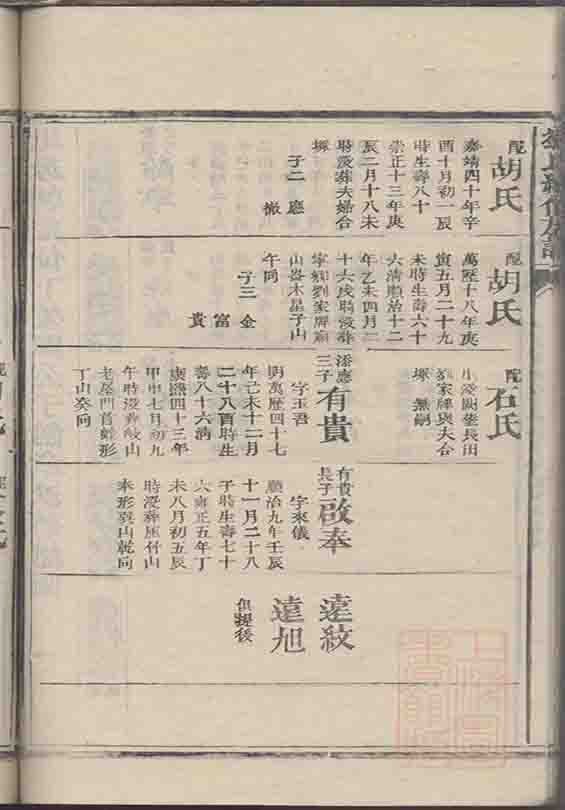 配胡氏
嘉靖四十年辛
酉十月初一辰
時生壽八十
崇正十三年庚
辰二月十八未
時歿葬夫婦合
塚
子二 應
徹
配胡氏
萬歷十八年庚
寅五月二十九
未時生壽六十
六清順治十二
年乙未四月二
十六戌時歿葬
寧鄉劉家牌
山木星子山
午向
子三 金
富
貴
配石氏
小歿
劉家牌與夫合
塚 無嗣
三子有貴
字玉吾
明萬歷四十七
年己未十二月
二十八酉時生
壽八十六清
康熙四十三年
甲申七月初九
午時歿葬
老屋門首獅形
丁山癸向
有貴
長子啟奉
字來儀
順治九年壬辰
十一月二十八
子時生壽七十
六雍正五年丁
未八月初五辰
時歿葬
形巽山乾向
遠紋
遠旭
俱提後